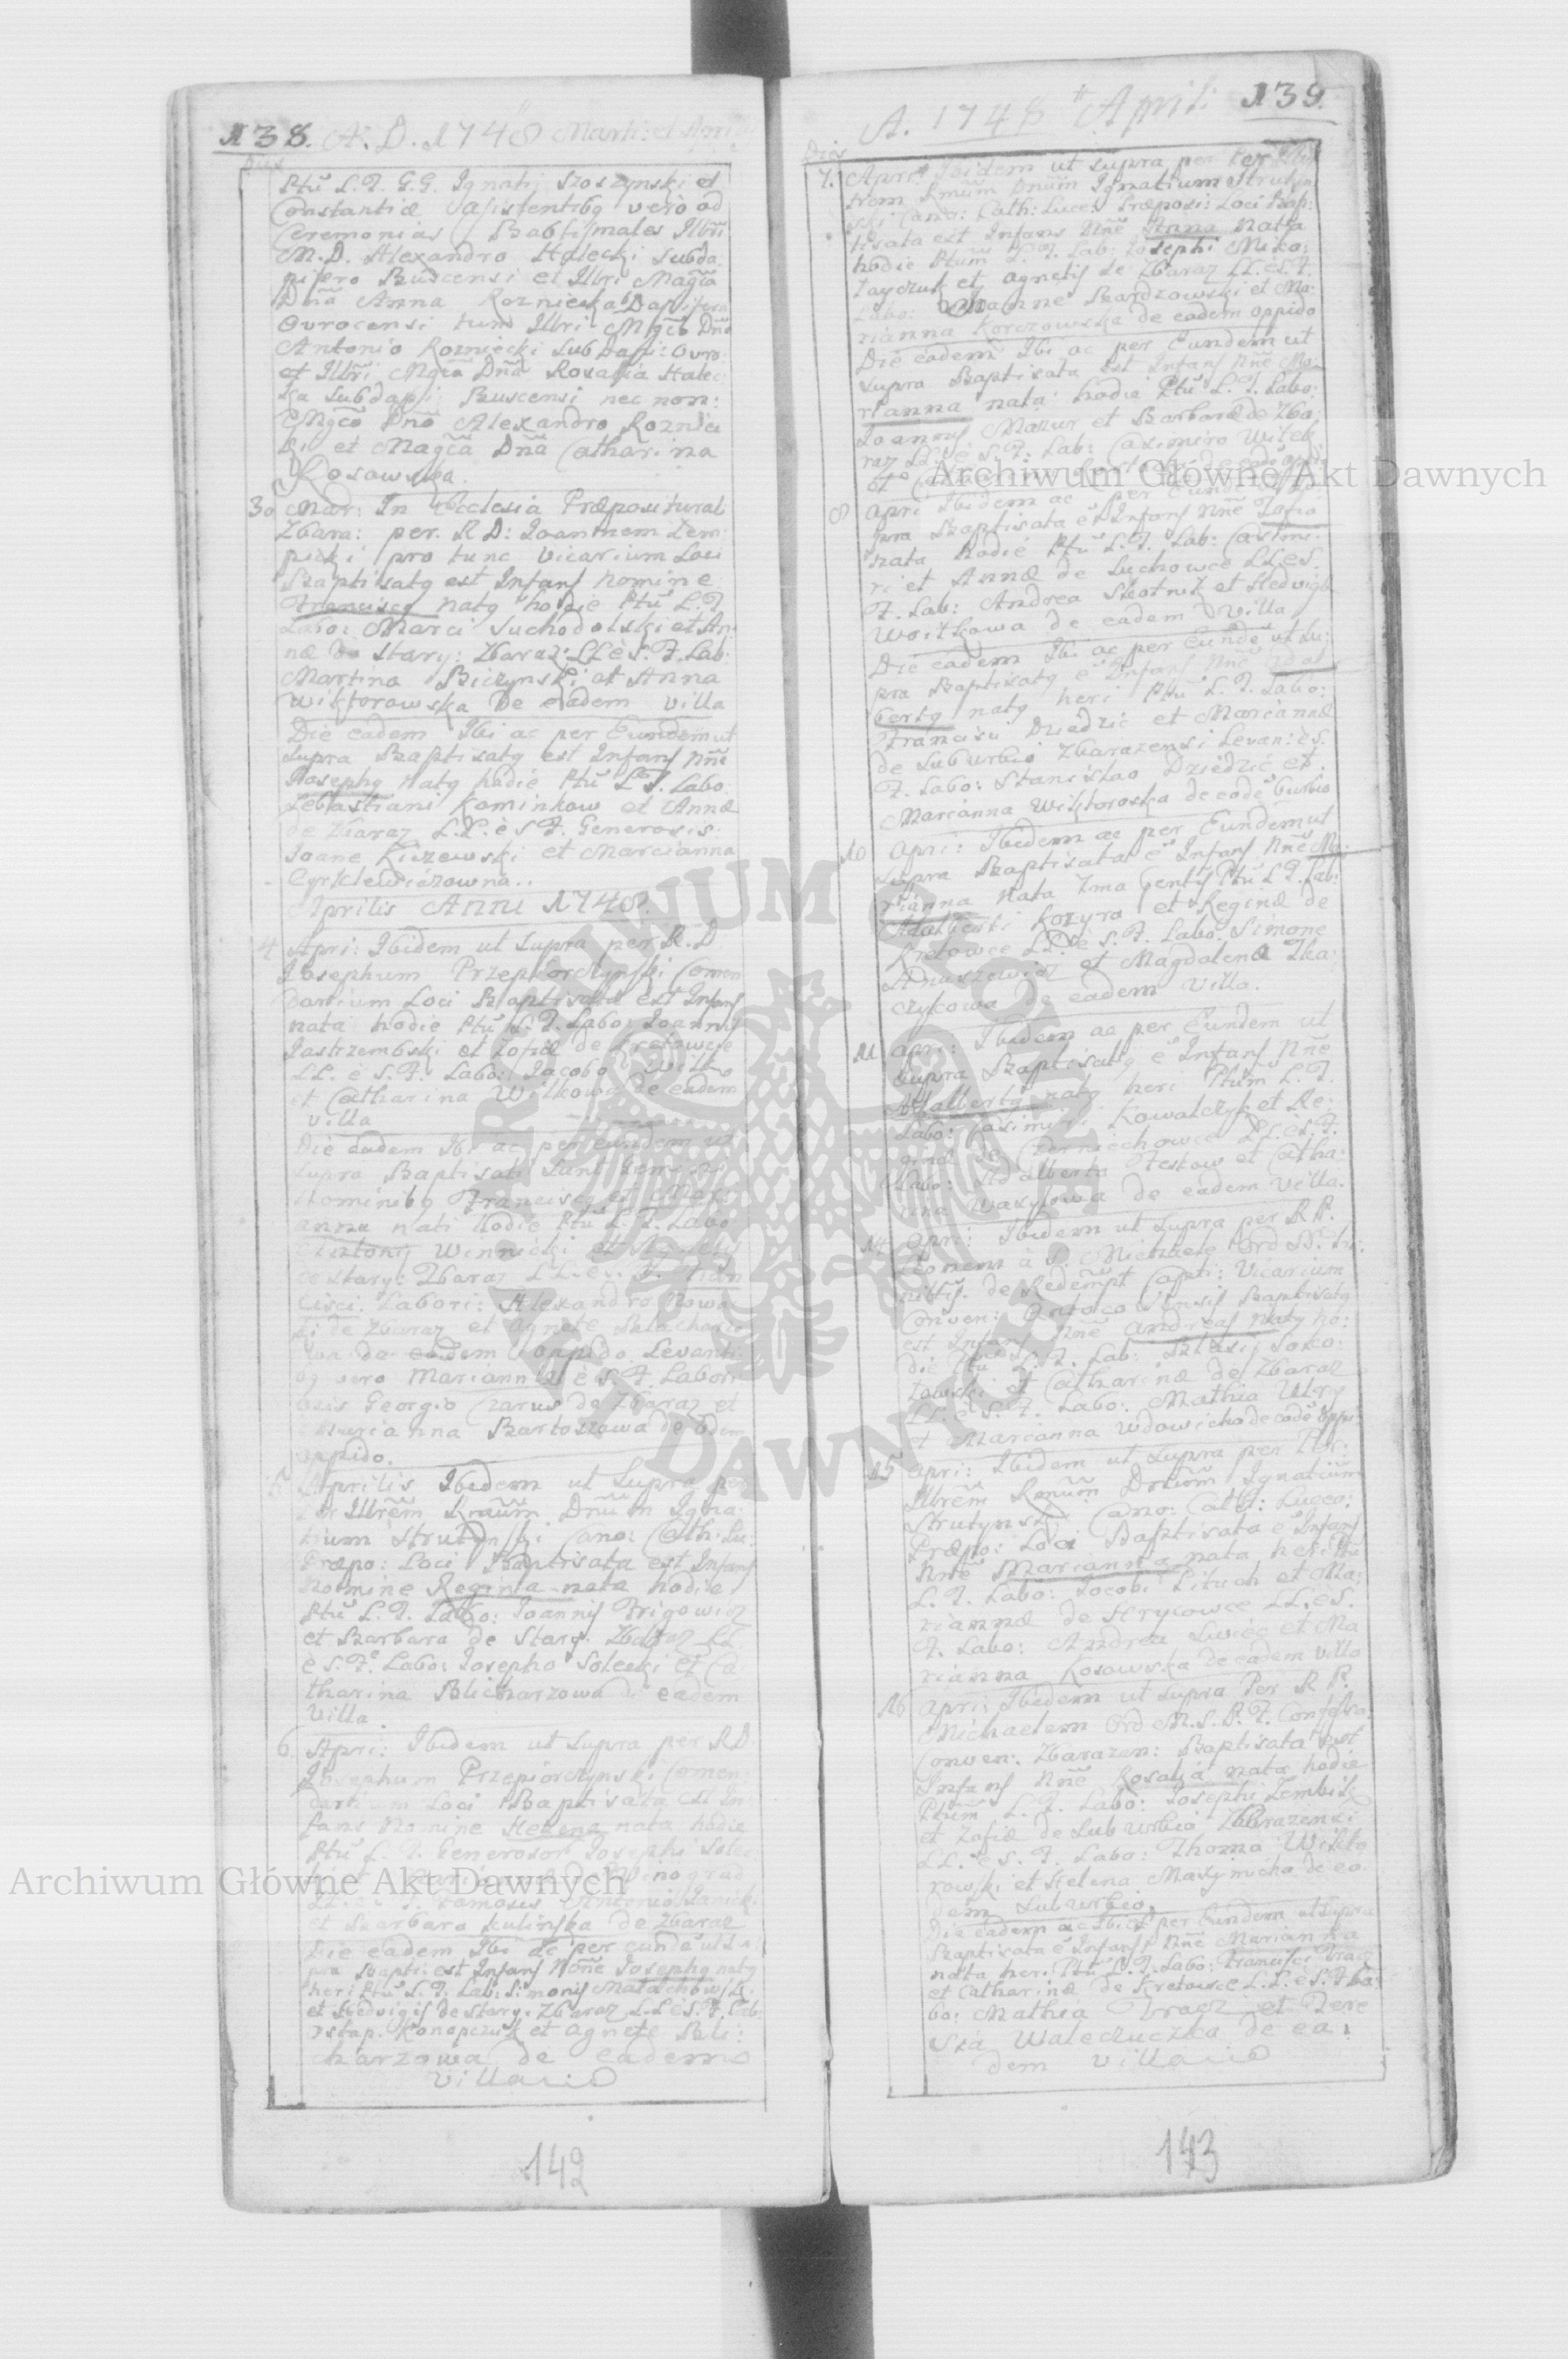 138. A. D. 1748 Marti: et April
Dies
Ptu L. T. G.G. Ignatij Szoszynski et
Constantiæ Asistentibq verò ad
Ceremonias Babtismales Illri
M. D. Alexandro Halecki Subda
pifero Buscensi et Illri Magca
Dna Anna Rozniecka Dapifera
Ovrocensi tum Illri Mgco Dno
Antonio Rozniecki SubDapi: Ovro:
et Illri Mgca Dna Rosalia Halec
ka Subdapi: Buscensi nec non:
Mgco Dno Alexandro Roznic
ki et Magca Dna Catharina
Kosowska.
30 Mar: In Ecclesia Præpositurali
Zbara: per. R D: Ioannem Lem
picki pro tunc Vicarium Loci
Baptisatq est Infans nomine
Franciscq natq hodie Ptu L. T.
Labo: Marci Suchodolski et An
næ de stary: Zbaraz LL è S. F. Lab:
Martino Biczynski et Anna
Wiktorowska de eadem villa
Die eadem Ibi ac per Eundem ut
supra Baptisatq est Infans nne
Iosephq natq hodie Ptu L T. Labo
Sebastiani Kominkow et Annæ
de Zbaraz L.L. è S F. Generosis:
Ioane Kiczewski et Marcianna
Cyrklewiczowna..
Aprilis Anni 1748.
4 Apri: Ibidem ut supra per R. D
Iosephum Przepiorczynski Comen
darium Loci Baptisata est Infans
nata hodie Ptu L. T. Labo: Ioannis
Iastrzembski et Zofiæ de Kretowce
LL. è S. F. Labo: Iacobo Wilk
et Catharina Wilkowa de eadem
villa
Die eadem Ibi ac per eundem ut
supra Baptisati sunt
nominibq Franciscq et Mari
anna nati hodie Ptu L. T. Labo
Antony Winnicki et Agnetis
de stary: Zbaraz LL. è S. F. Fran
cisci Labori: Alexandro Nowa
ki de Zbaraz et Agnete
wa de eadem oppido Levanti
bq vero Mariannæ è S. F. Labori
osis Georgio Czarus de Zbaraz et
Marianna Bartoszowa de eodem
oppido.
5 Aprilis Ibidem ut supra per
Per Illrem Rndum Dnum Igna
tium Strutynski Cano: Cath: Lu:
Præpo: Loci Baptisata est Infans
nomine Regina nata hodie
Ptu L. T. Labo: Ioannis Frigowicz
et Barbara de Stary. Zbaraz LL
è S. F. Labo: Iosepho Solecki et Ca
tharina Blicharzowa de eadem
villa.
6 Apri: Ibidem ut supra per R D.
Iosephum Przepiorczynski Comen
darium Loci Baptisata est In
fans nomine Helena nata hodie
Ptu L. T. Generosor Iosephi Sole
Marianna de Winograd
Famosis Antonio
et Barbara Kulinska de Zbaraz
Die eadem Ibi ac per eunde ut su
pra Bapti: est Infans Nomne Iosephq natq
heri Ptu L. T. Lab: Simonis Małachowski
et Hedvigis de stary. Zbaraz L.L è S. F. Lab:
Ostap. Konopczuk et Agnete Bli:
charzowa de eadem
villa
142
A. 1748 April: 139.
Dies
7. April Ibidem ut supra per Per Illu
trem Rmum Dnum Ignatium Strutyn
ski Cano: Cath: Luce: Præposi: Loci Bap:
tisata est Infans Nne Anna Nata
hodie Ptum L. T. Lab: Iosephi Miko:
łayczuk et Agnetis de Zbaraz LL. è S. F.
Labo: Ioanne Bardzowski et Ma:
rianna Korczowska de eadem oppido
Die eadem Ibi ac per Eundem ut
supra Baptisata est Infans Nne Ma:
rianna nata hodie Ptu L. T. Labo:
Ioannis Mazur et Barbaræ de Zba
raz LL. è S. F. Lab: Casimiro Witek
et
8 Apri Ibidem ac per Eunde ut su
pra Baptisata e Infans Nne Zofia
nata hodie Ptu L. T. Lab:
ri et Annæ de Suchowce LL. è S.
F. Lab: Andrea Skotnik et Hedvige
Woitkowa de eadem villa
Die eadem Ibi ac per Eunde ut su:
pra Baptisatq e Infans Nne Adal
bertq natq heri Ptu L. T. Labo:
Francisci Dziedzic et Mariannæ
de Suburbio Zbarazensi Levan: è S.
F. Labo: Stanislao Dziedzic et
Marianna Wiktoroska de eode burbio
10 Apri: Ibidem ac per Eundem ut
supra Baptisata e Infans Nne Ma:
rianna Nata 7ma Ptu L T. Lab:
Adalberti Kozyra et Reginæ de
Kretowce LL è S. F. Labo: Simone
Anuszewicz et Magdalena Tka:
czycowa de eadem villa.
11 Apri: Ibidem ac per Eundem ut
supra Baptisatq e Infans Nne
Adalbertq natq heri Ptum L. T.
Labo: Casimiri Kowalczyk et Re:
ginæ de Czerniechowce LL. è S. F.
Labo: Adalberto Festow et Catha:
rina Wasylowa de eadem villa.
14 Apri: Ibidem ut supra per R P.
Leonem à S. Michaele Ord SS. Tri:
nitis. de Redempt Capti: Vicarium
Conven: Baptisatq
est Infans Nne Andreas natq ho:
die Ptu L. T. Lab: Blasij Soko:
łowski et Catharinæ de Zbaraz
LL. è S. F. Labo: Mathia
et Marianna Wdowicha de eode oppi:
15 Apri: Ibidem ut supra per Per:
Illrem Rmum Dnum Ignatium
Strutynski Cano: Cath: Lucco:
Præpo: Loci Baptisata e Infans
Nne Marianna nata heri Ptu
L. T. Labo: Iacobi Lituch et Ma:
riannæ de Hrycowce LL. è S.
F. Labo: Andrea et Ma
rianna Kosowska de eadem villa
16 Apri: Ibidem ut supra Per R P.
Michaelem Ord M. S. P. F. Confessa:
Conven: Zbarazen: Baptisata est
Infans Nne Rosalia nata hodie
Ptum L. T. Labo: Iosephi
et Zofiæ de Suburbio Zbarazensi
LL. è S. F. Labo: Thoma Wikto
rowski et Helena Maxymicha de eo
dem Suburbio.
Die eadem ac Ibid per Eundem ut supra
Baptisata e Infans Nne Marianna
nata heri Ptu L. T. Labo: Francisci Tracz
et Catharinæ de Kretowce L.L. è S. F. La:
bo: Mathia Tracz et Tere
sia Waleczuczka de ea:
dem villa
143
Archiwum Główne Akt Dawnych
Archiwum Główne Akt Dawnych
ARCHIWUM GŁÓWNE AKT DAWNYCH